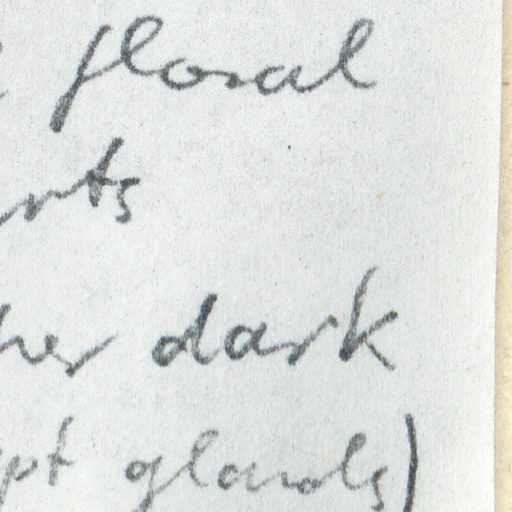 floral
rts
her dark
pt glands)